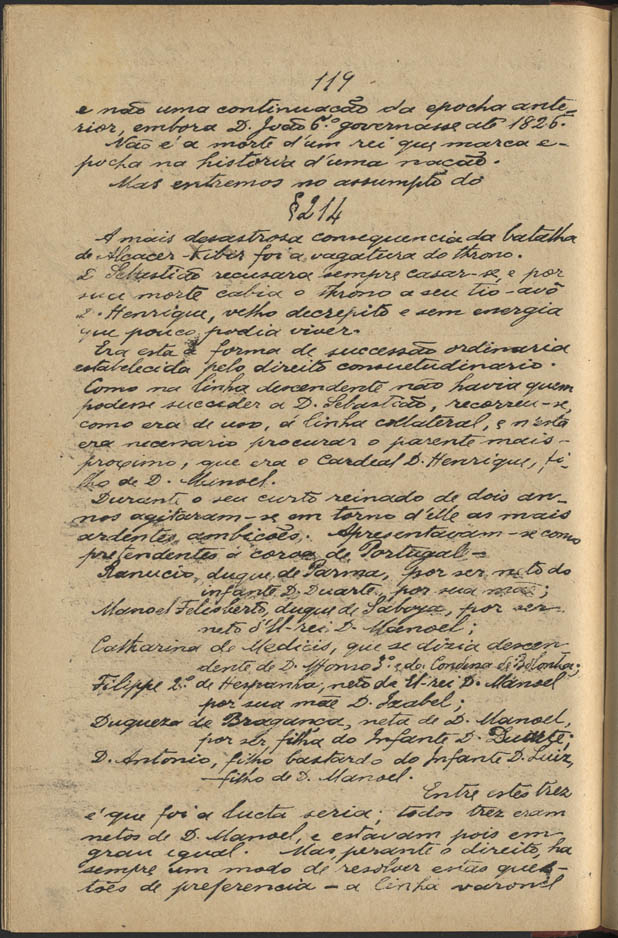 119
e não uma continuação da epocha ante-
rior, embora D. João 6.º governasse até 1826.
Não é a morte d'um rei que marca e-
pocha na historia d'uma nação.
Mas entremos no assumpto do
§214
A mais desastrosa consequencia da batalha
de Alcacer-Kibir foi a vagatura do throno.
D. Sebastião recusara sempre casar-se, e por
sua morte cabia o throno a seu tio-avô
D. Henrique, velho decrepito e sem energia
que pouco podia viver.
Era esta a forma de successão ordinaria
estabelecida pelo direito consuetudinario.
Como na linha descendente não havia quem
podesse succeder a D. Sebastião, recorreu-se,
como era de uso, á linha collateral, e n'esta
era necessario procurar o parente mais-
proximo, que era o Cardeal D. Henrique, fi-
lho de D. Manoel.
Durante o seu curto reinado de dois an-
nos agitaram-se em torno d'elle as mais
ardentes ambições. Apresentavam-se como
pretendentes á coroa de Portugal =
Ranucio, duque de Parma, por ser neto do
infante D. Duarte por sua mãe;
Manoel Felisberto, duque de Saboya, por ser
neto d'El-rei D. Manoel;
Catharina de Medicis, que se dizia descen-
dente de D. Affonso 3.º e da Condessa de Bolonha;
Filippe 2.º de Hespanha, neto de El-rei D. Manoel
por sua mãe D. Izabel;
Duqueza de Bragança, neta de D. Manoel,
por ser filha do Infante D. Duarte;
D. Antonio, filho bastardo do Infante D. Luiz,
filho de D. Manoel.
Entre estes trez
é que foi a lucta seria; todos trez eram
netos de D. Manoel, e estavam pois em
grau igual. Mas, perante o direito, ha
sempre um modo de resolver estas ques-
tões de preferencia - a linha varonil